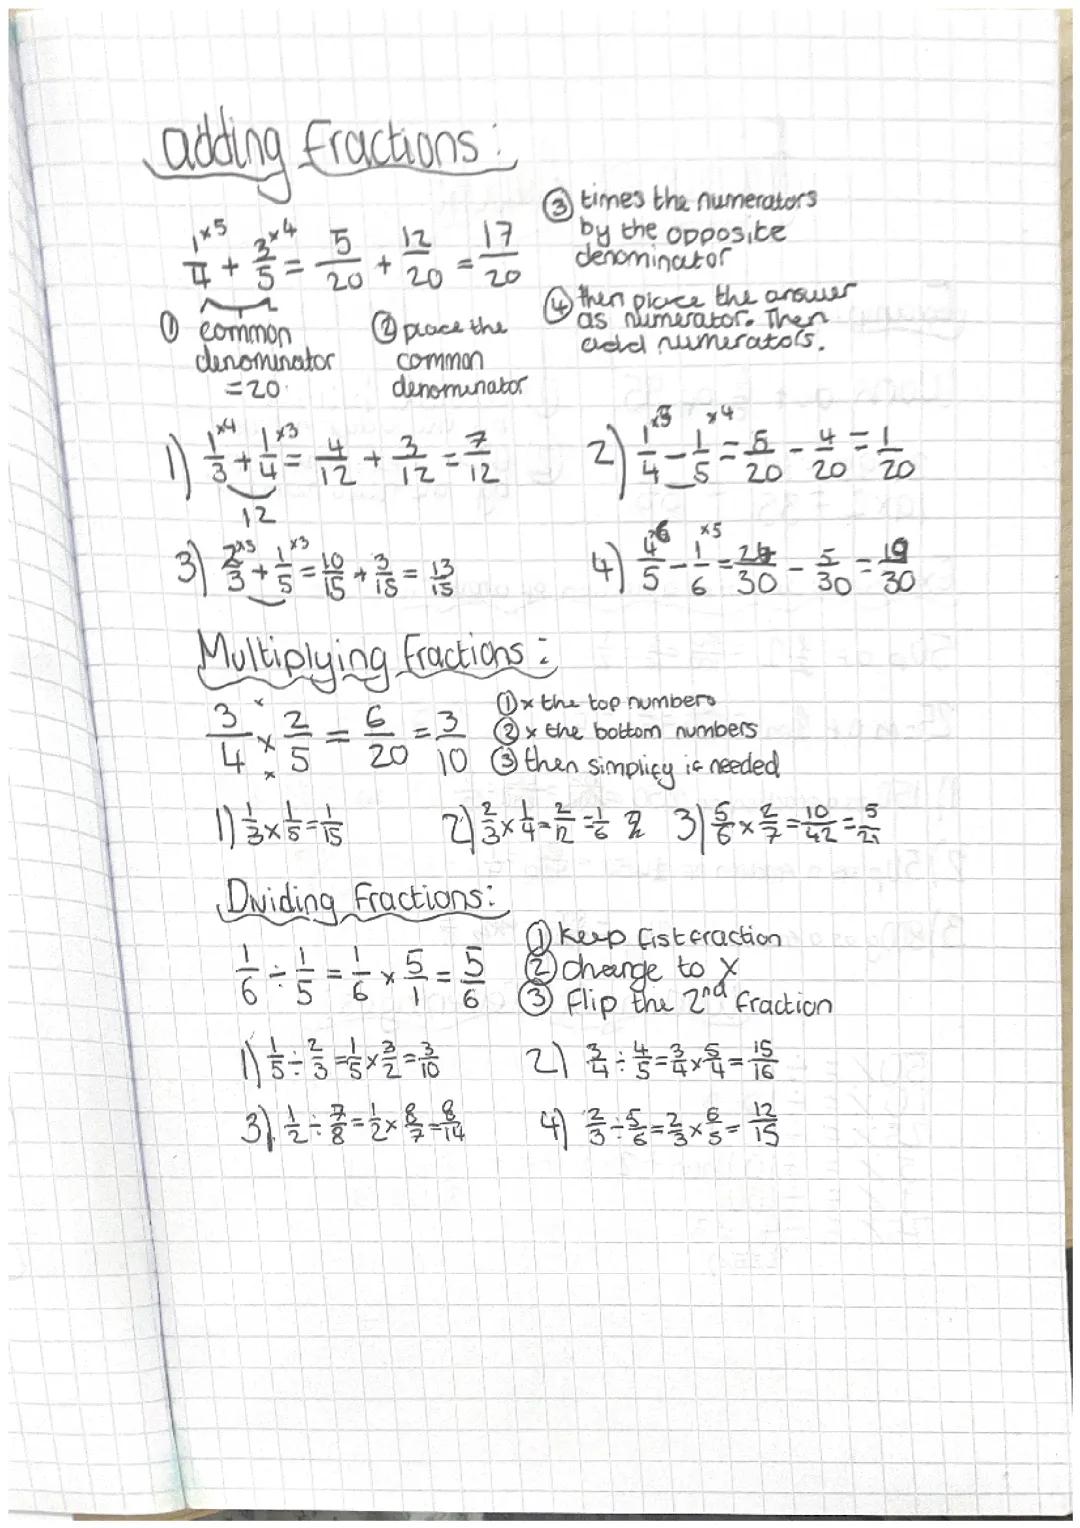 adding fractions:
1/4 ×5 + 3/5 ×4 = 5/20 + 12/20 = 17/20
① common denominator
= 20
② place the
common
denominator
③ times the numerators
by the opposite
denominator
④ then place the answer
as numerator. Then
add numerators.
1) 1/3 ×4 + 1/4 ×3 = 4/12 + 3/12 = 7/12
12
2) 1/4 ×5 - 1/5 ×4 = 5/20 - 4/20 = 1/20
3) 2/3 ×5 + 1/5 ×3 = 10/15 + 3/15 = 13/15
4) 4/5 ×6 - 1/6 ×5 = 24/30 - 5/30 = 19/30
Multiplying fractions:
3/4 × 2/5 = 6/20 = 3/10
① × the top numbers
② × the bottom numbers
③ then simplify if needed
1) 1/3 × 1/5 = 1/15
2) 2/3 × 1/4 = 2/12 = 1/6
3) 5/6 × 2/7 = 10/42 = 5/21
Dividing fractions:
1/6 ÷ 1/5 = 1/6 × 5/1 = 5/6
① keep fist fraction
② change to ×
③ flip the 2nd fraction
1) 1/5 ÷ 2/3 = 1/5 × 3/2 = 3/10
2) 3/4 ÷ 4/5 = 3/4 × 5/4 = 15/16
3) 1/2 ÷ 7/8 = 1/2 × 8/7 = 8/14
4) 2/3 ÷ 5/6 = 2/3 × 6/5 = 12/15